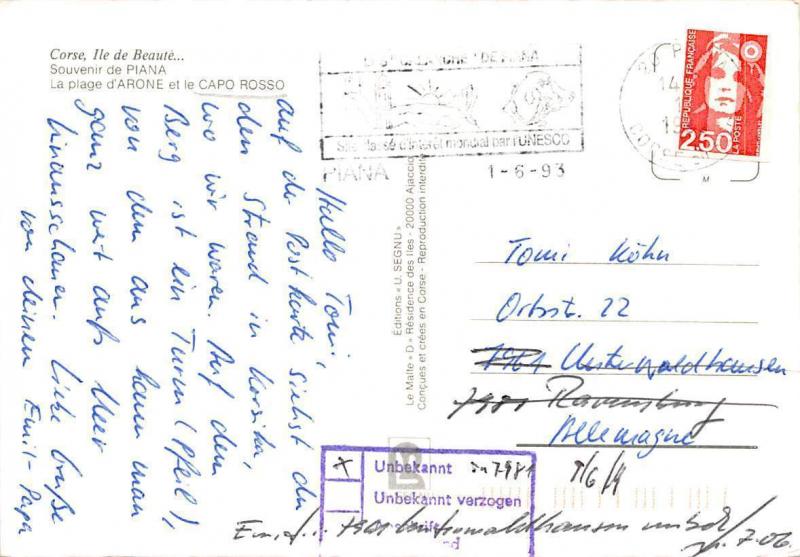 Corse, Ile de Beauté...
Souvenir de PIANA
La plage d'ARONE et le CAPO ROSSO
Hallo Tomi,
auf der Postkarte siehst du
den Strand in Korsika,
wo wir waren. Auf dem
Berg ist ein Turm (Pfeil),
von dem aus kann man
ganz weit aufs Meer
hinausschauen. Liebe Grüße
von deinem Emil-Papa
Editions « U. SEGNU »
Le Malte « D » Résidence des Iles - 20000 Ajaccio
Conçues et créées en Corse - Reproduction interdite
DE PIANA
Site classé d'intérêt mondial par l'UNESCO
PIANA
1-6-93
CORSE
RÉPUBLIQUE FRANÇAISE
2.50
LA POSTE
M
Tomi Köhn
Orbstr. 22
7981 Unterwaldhausen
7981 Ravensburg
Allemagne
Unbekannt in 7981
Unbekannt verzogen
7981 Unterwaldhausen unbek